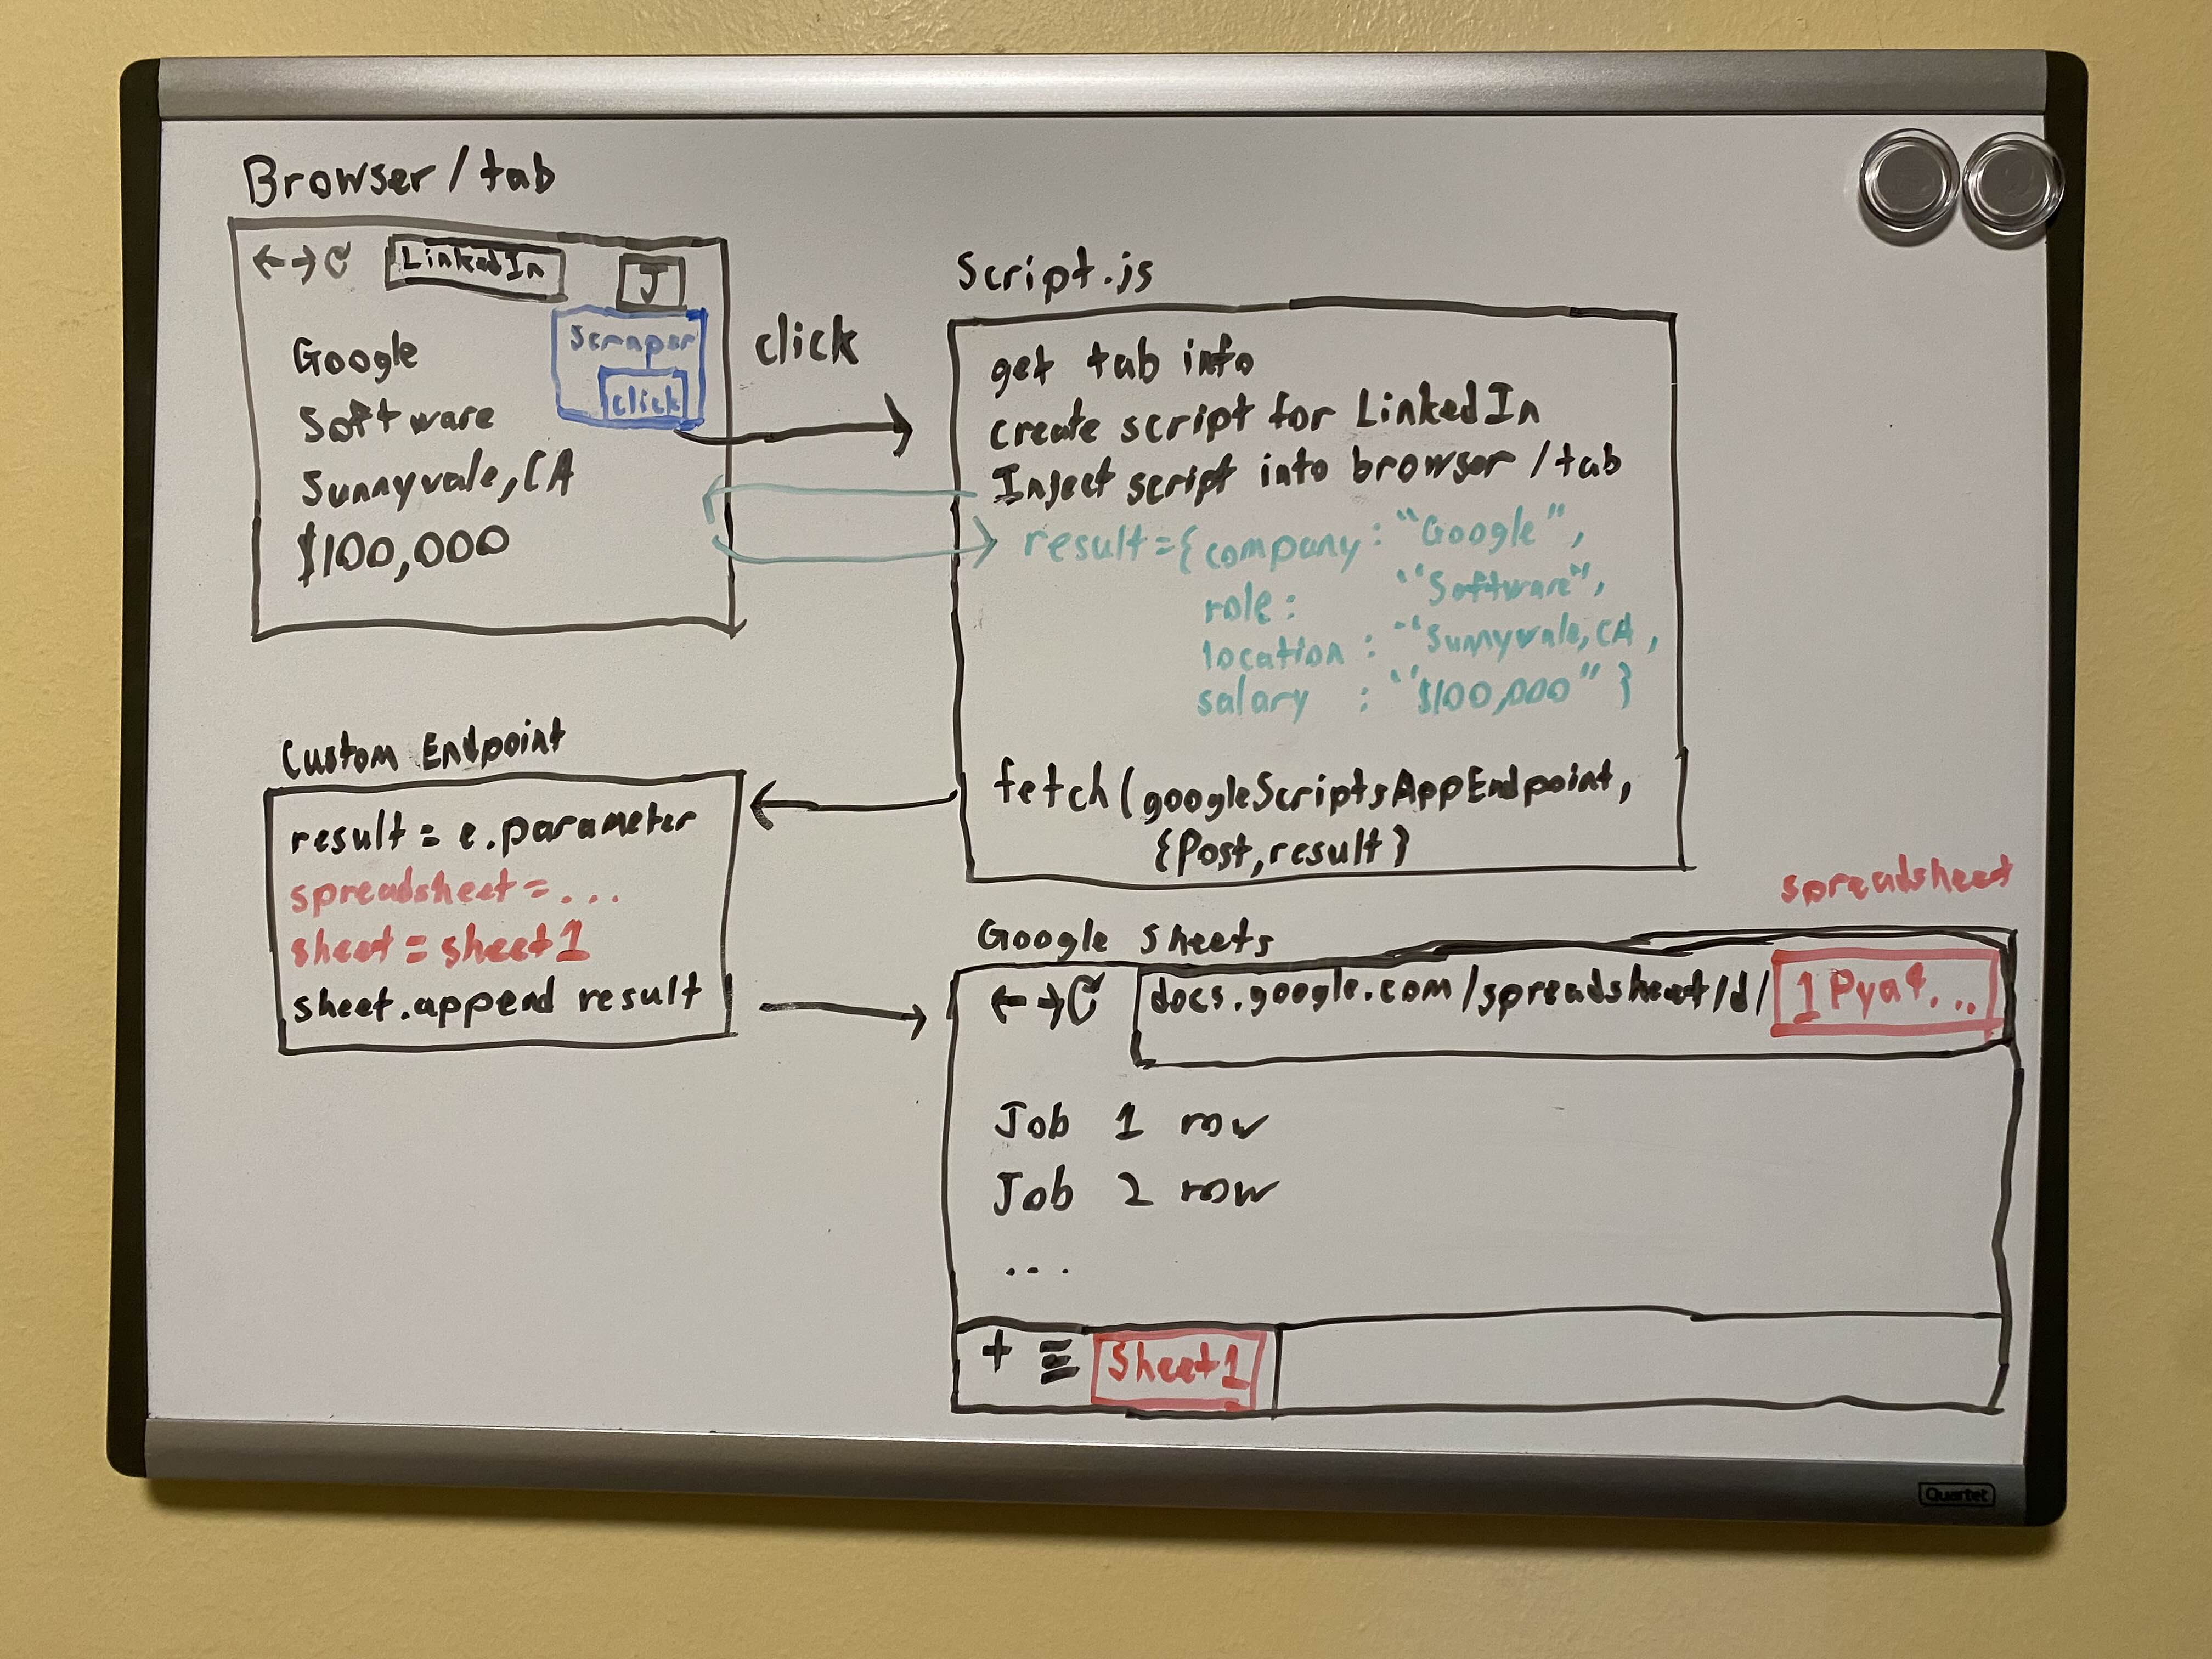 Browser/tab
← → LinkedIn J
Scraper
click
Google
Software
Sunnyvale, CA
$100,000
click
Script.js
get tab info
create script for LinkedIn
Inject script into browser/tab
result={company: "Google",
role: "Software",
location: "Sunnyvale, CA,
salary: "$100,000"}
fetch(googleScriptsAppEndpoint,
{Post, result}
Custom Endpoint
result = e.parameter
spreadsheet = ...
sheet = sheet1
sheet.append result
spreadsheet
Google Sheets
← → docs.google.com/spreadsheet/d/1Pyat...
Job 1 row
Job 2 row
...
+ ≡ Sheet1
Quartet